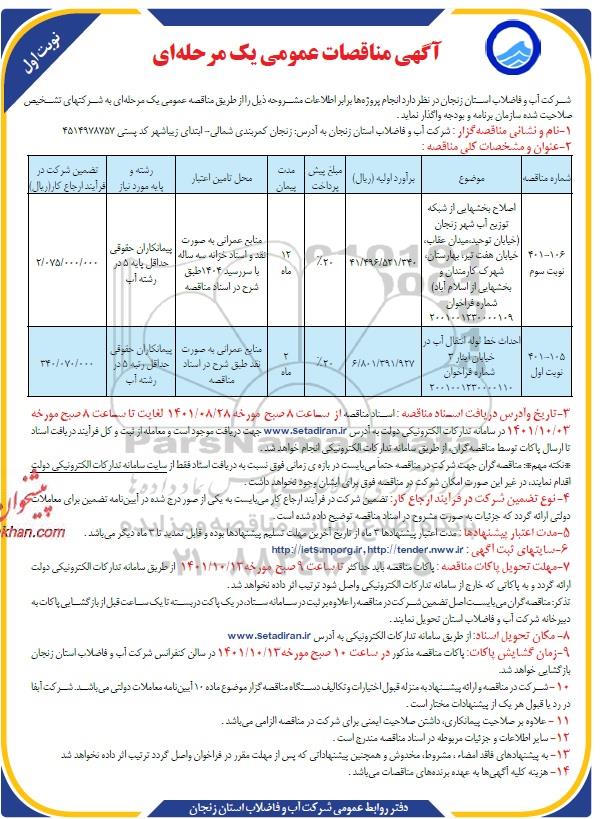 نوبت اول
آگهی مناقصات عمومی یک مرحله‌ای
شرکت آب و فاضلاب استان زنجان در نظر دارد انجام پروژه‌ها برابر اطلاعات مشروحه ذیل را از طریق مناقصه عمومی یک مرحله‌ای به شرکتهای تشخیص
صلاحیت شده سازمان برنامه و بودجه واگذار نماید.
۱-نام و نشانی مناقصه‌گزار: شرکت آب و فاضلاب استان زنجان به آدرس: زنجان کمربندی شمالی- ابتدای زیباشهر کد پستی ۴۵۱۴۹۷۸۷۵۷
۲-عنوان و مشخصات کلی مناقصه:
شماره مناقصه	موضوع	برآورد اولیه (ریال)	مبلغ پیش پرداخت	مدت پیمان	محل تامین اعتبار	رشته و پایه مورد نیاز	تضمین شرکت در فرآیند ارجاع کار(ریال)
۴۰۱-۱۰۶ نوبت سوم	اصلاح بخشهایی از شبکه توزیع آب شهر زنجان (خیابان توحید،میدان عقاب، خیابان هفت تیر، بهارستان، شهرک کارمندان و بخشهایی از اسلام آباد) شماره فراخوان ۲۰۰۱۰۰۱۲۳۰۰۰۰۱۰۹	۴۱/۴۹۶/۵۲۱/۳۴۰	٪۲۰	۱۲ ماه	منابع عمرانی به صورت نقد و اسناد خزانه سه ساله با سررسید ۱۴۰۴طبق شرح در اسناد مناقصه	پیمانکاران حقوقی حداقل پایه ۵ در رشته آب	۲/۰۷۵/۰۰۰/۰۰۰
۴۰۱-۱۰۵ نوبت اول	احداث خط لوله انتقال آب در خیابان ایثار ۲ شماره فراخوان ۲۰۰۱۰۰۱۲۳۰۰۰۰۱۱۰	۶/۸۰۱/۳۹۱/۹۲۷	٪۲۰	۲ ماه	منابع عمرانی به صورت نقد طبق شرح در اسناد مناقصه	پیمانکاران حقوقی حداقل رتبه ۵ در رشته آب	۳۴۰/۰۷۰/۰۰۰
۳-تاریخ وآدرس دریافت اسناد مناقصه: اسناد مناقصه از ساعت ۸ صبح مورخه ۱۴۰۱/۰۸/۲۸ لغایت تا ساعت ۸ صبح مورخه
۱۴۰۱/۱۰/۰۳ در سامانه تدارکات الکترونیکی دولت به آدرس www.Setadiran.ir جهت دریافت موجود است و معامله از ثبت و کل فرآیند دریافت اسناد
تا ارسال پاکات توسط مناقصه‌گران، از طریق سامانه تدارکات الکترونیکی انجام خواهد شد.
※نکته مهم※: مناقصه گران جهت شرکت در مناقصه حتماً می‌بایست در بازه ی زمانی فوق نسبت به دریافت اسناد فقط از سایت سامانه تدارکات الکترونیکی دولت
اقدام نمایند، در غیر این صورت امکان شرکت در مناقصه فوق برای ایشان وجود نخواهد داشت.
۴- نوع تضمین شرکت در فرآیند ارجاع کار: تضمین شرکت در فرآیند ارجاع کار می‌بایست به یکی از صور درج شده در آیین‌نامه تضمین برای معاملات
دولتی ارائه گردد که جزئیات به صورت مشروح در اسناد مناقصه توضیح داده شده است.
۵-مدت اعتبار پیشنهادها: مدت اعتبار پیشنهادها ۳ ماه از تاریخ آخرین مهلت تسلیم پیشنهادها بوده و قابل تمدید تا ۳ ماه دیگر می‌باشد.
۶-سایتهای ثبت آگهی: http://iets.mporg.ir, http://tender.nww.ir
۷-مهلت تحویل پاکات مناقصه: پاکات مناقصه باید حداکثر تا ساعت ۹ صبح مورخه ۱۴۰۱/۱۰/۱۳ از طریق سامانه تدارکات الکترونیکی دولت
ارائه گردد و به پاکاتی که خارج از سامانه تدارکات الکترونیکی واصل شود ترتیب اثر داده نخواهد شد.
تذکر: مناقصه گران می‌بایست اصل تضمین شرکت در مناقصه را علاوه بر ثبت در سامانه ستاد، در یک پاکت دربسته تا یک ساعت قبل از بازگشایی پاکات به
دبیرخانه شرکت آب و فاضلاب استان تحویل نمایند.
۸- مکان تحویل اسناد: از طریق سامانه تدارکات الکترونیکی به آدرس www.Setadiran.ir
۹-زمان گشایش پاکات: پاکات مناقصه مذکور در ساعت ۱۰ صبح مورخه ۱۴۰۱/۱۰/۱۳ در سالن کنفرانس شرکت آب و فاضلاب استان زنجان
بازگشایی خواهد شد.
۱۰- شرکت در مناقصه و ارائه پیشنهاد به منزله قبول اختیارات و تکالیف دستگاه مناقصه گزار موضوع ماده ۱۰ آیین‌نامه معاملات دولتی می‌باشد. شرکت آبفا
در رد یا قبول هر یک از پیشنهادات مختار است.
۱۱ - علاوه بر صلاحیت پیمانکاری، داشتن صلاحیت ایمنی برای شرکت در مناقصه الزامی می‌باشد.
۱۲- سایر اطلاعات و جزئیات مربوطه در اسناد مناقصه مندرج است.
۱۳- به پیشنهادهای فاقد امضاء، مشروط، مخدوش و همچنین پیشنهاداتی که پس از مهلت مقرر در فراخوان واصل گردد ترتیب اثر داده نخواهد شد
۱۴- هزینه کلیه آگهی‌ها به عهده برنده‌های مناقصات می‌باشد.
دفتر روابط عمومی شرکت آب و فاضلاب استان زنجان